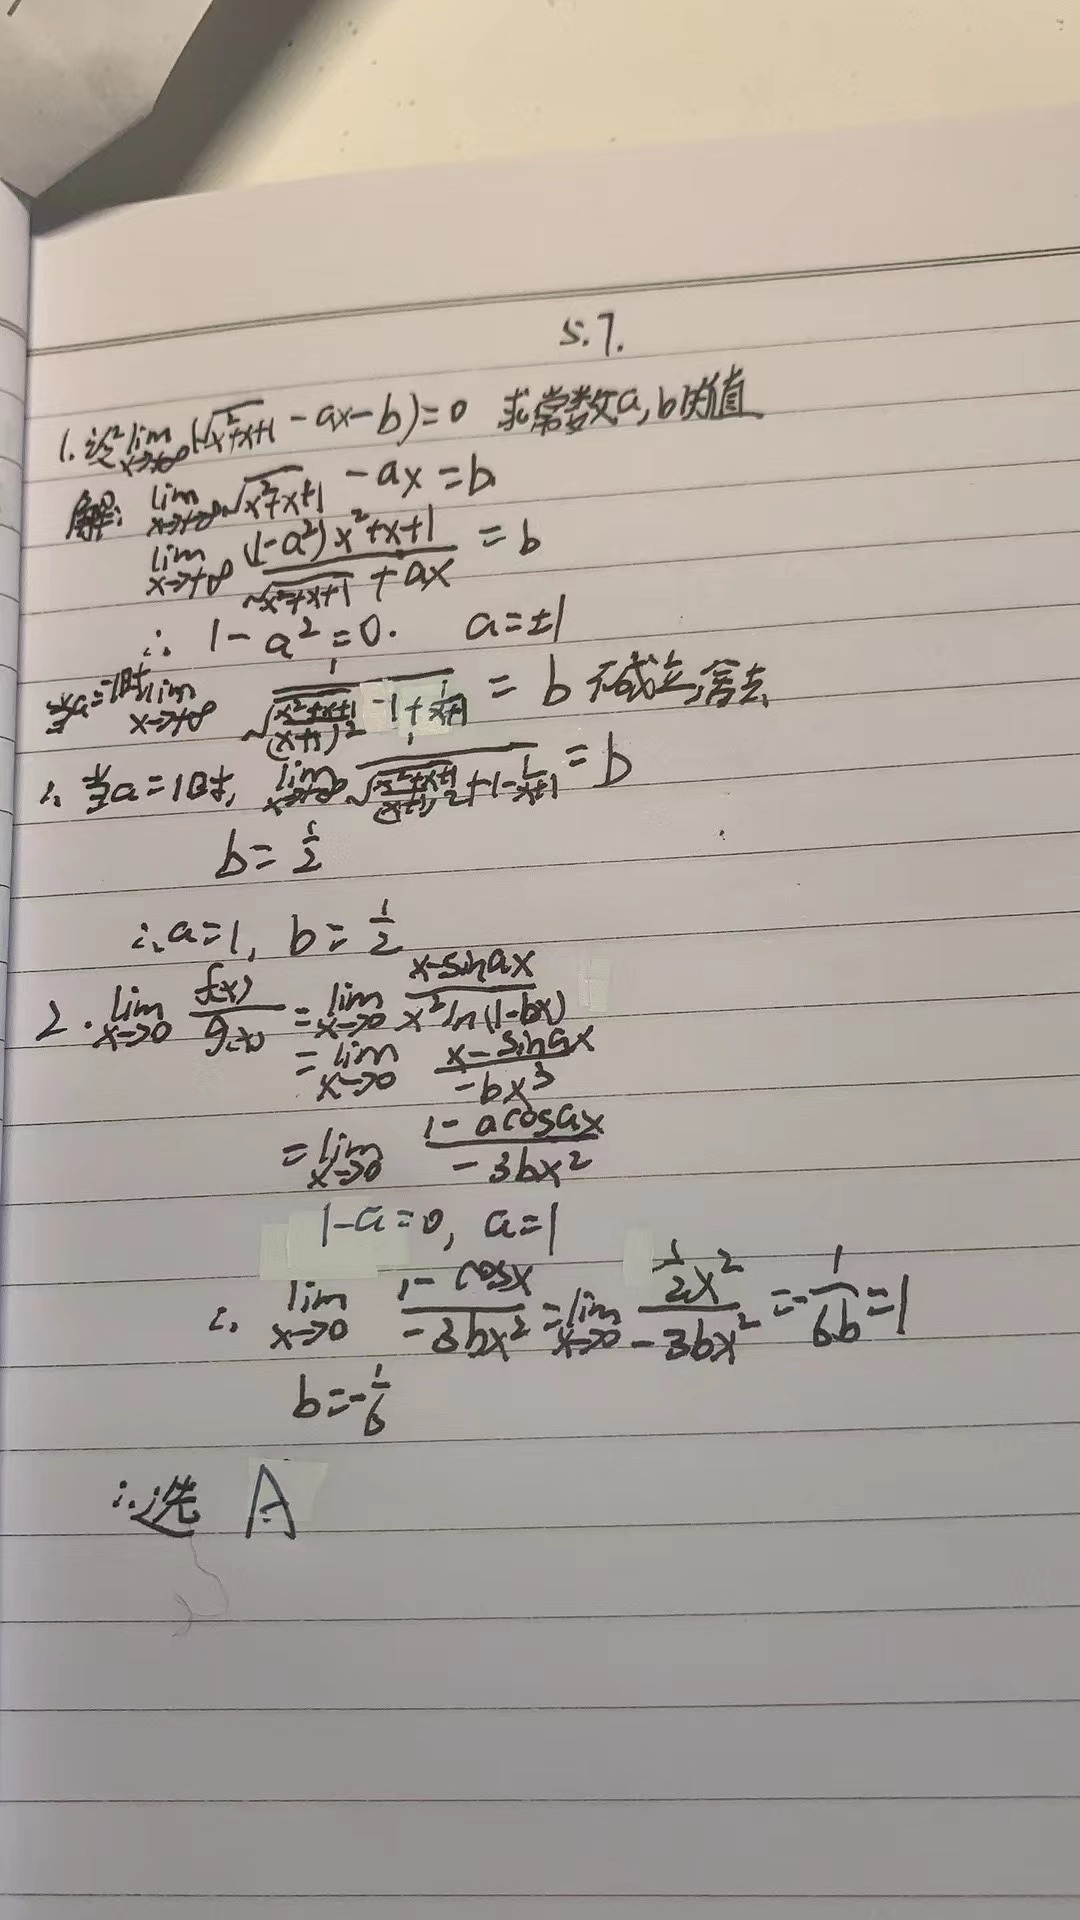 5.7.
1. 设 lim x→+∞ (√(x²+x+1) - ax - b) = 0 求常数a, b的值
解: lim x→+∞ √(x²+x+1) - ax = b
lim x→+∞ ((1-a²)x²+x+1)/(√(x²+x+1) + ax) = b
∴ 1-a²=0. a=±1
当a=-1时 lim x→+∞ 1/(√((x²+x+1)/(x+1)²) -1+1/(x+1)) = b 不成立,舍去
∴ 当a=1时, lim x→+∞ 1/(√((x²+x+1)/(x+1)²) +1-1/(x+1)) = b
b=1/2
∴ a=1, b=1/2
2. lim x→0 f(x)/g(x) = lim x→0 (x-sinax)/(x²ln(1-bx))
= lim x→0 (x-sinax)/(-bx³)
= lim x→0 (1-acosax)/(-3bx²)
1-a=0, a=1
∴ lim x→0 (1-cosx)/(-3bx²) = lim x→0 (1/2 x²)/(-3bx²) = -1/(6b) = 1
b=-1/6
∴选 A